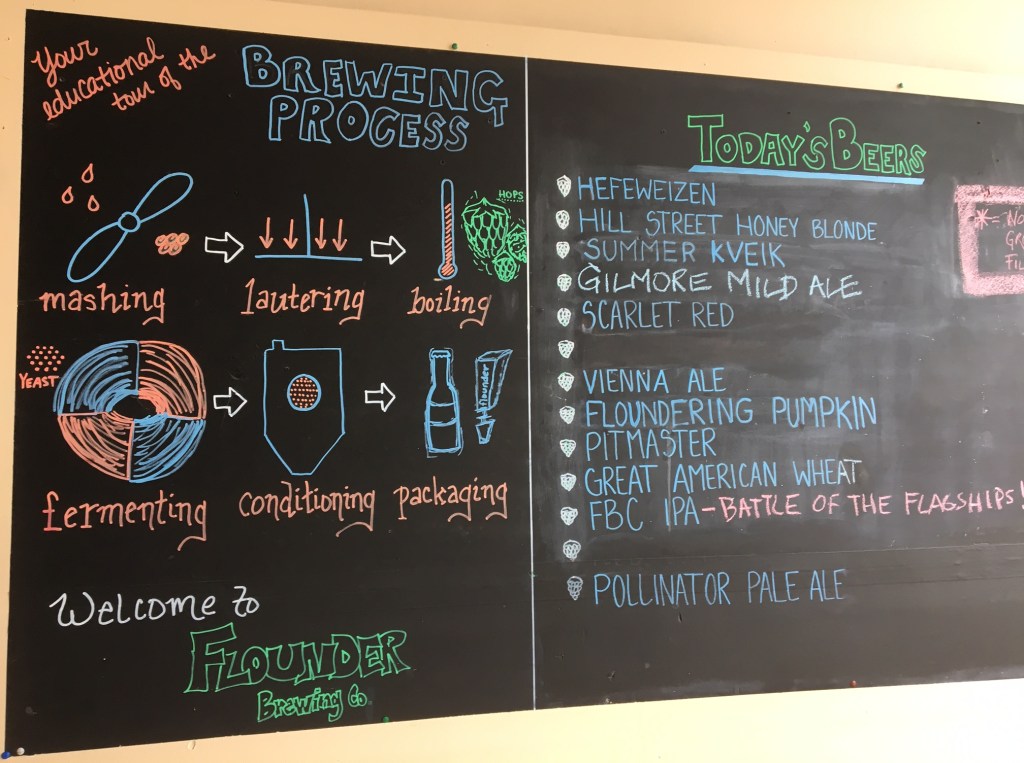 Your
educational
tour of the
BREWING
PROCESS
HOPS
mashing
lautering
boiling
YEAST
flounder
fermenting
conditioning
packaging
Welcome to
FLOUNDER
Brewing Co.
TODAY'S BEERS
HEFEWEIZEN
HILL STREET HONEY BLONDE
SUMMER KVEIK
GILMORE MILD ALE
SCARLET RED
VIENNA ALE
FLOUNDERING PUMPKIN
PITMASTER
GREAT AMERICAN WHEAT
FBC IPA - BATTLE OF THE FLAGSHIPS!
POLLINATOR PALE ALE